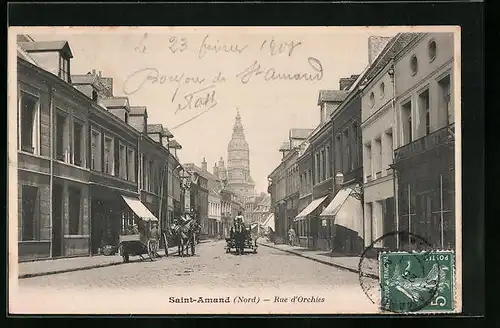 Le 23 février 1908
Bonjour de St. Amand
Saint-Amand (Nord) — Rue d'Orchies
POSTES
5